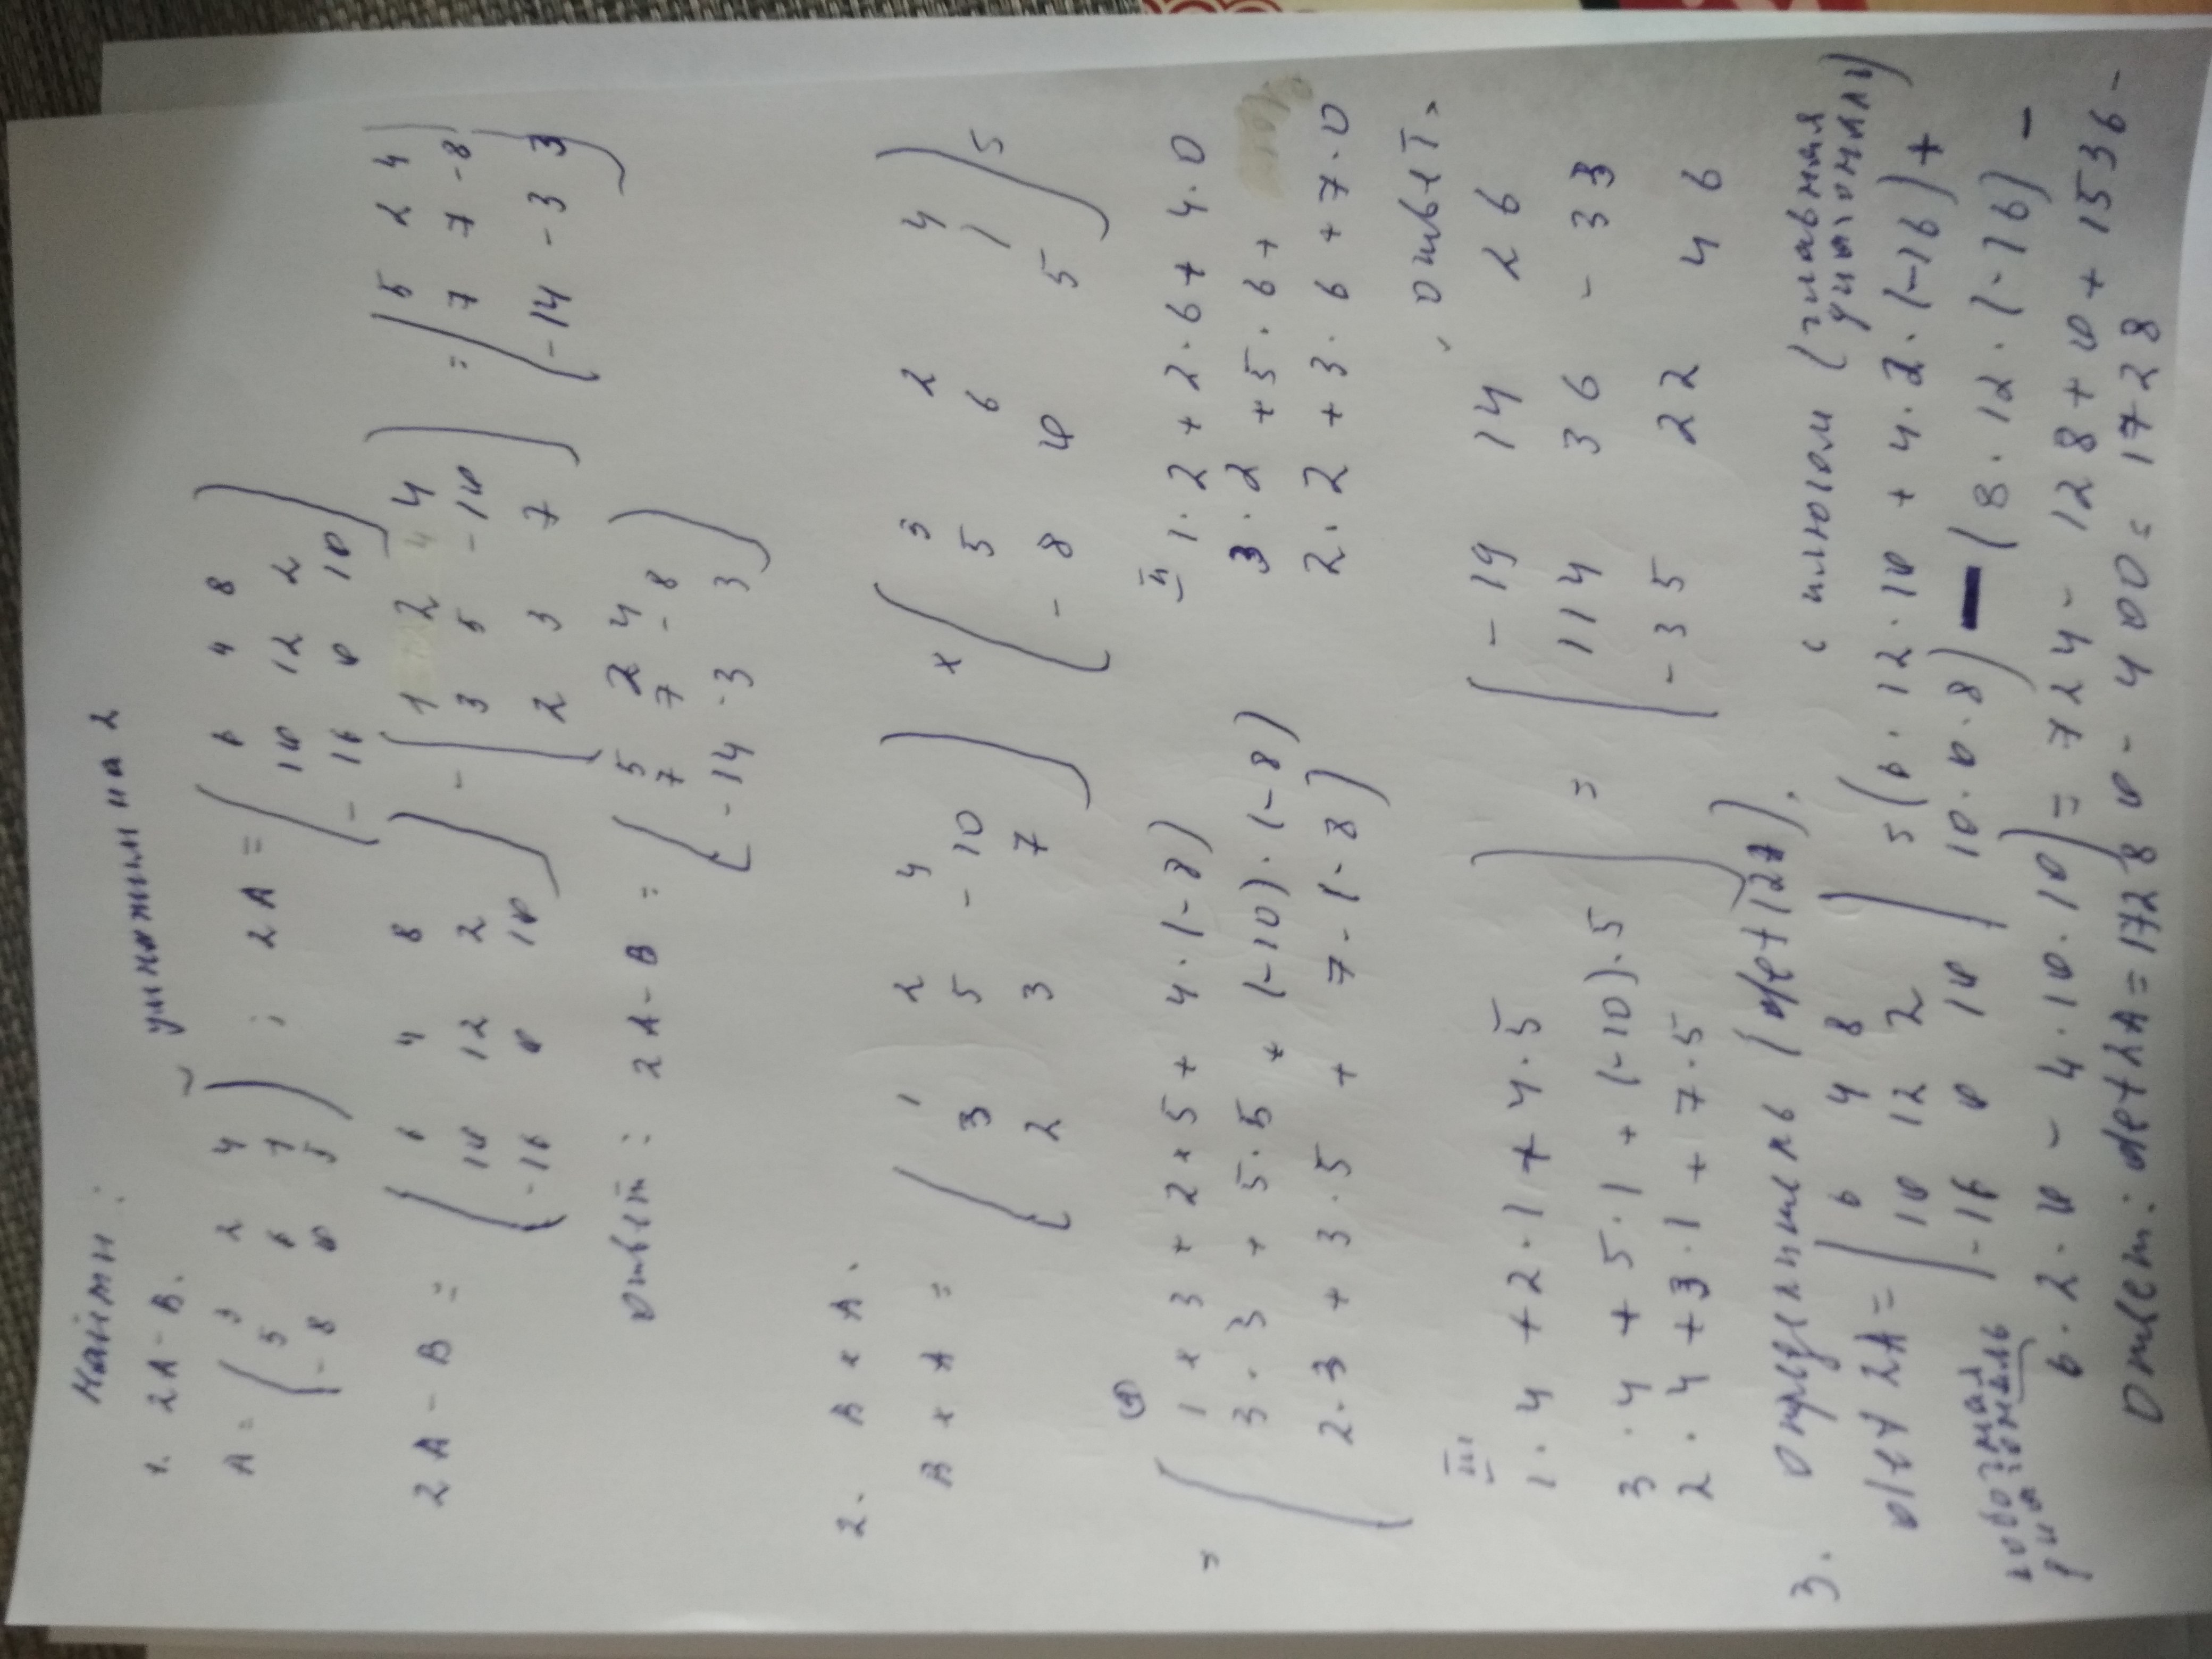 Найти:
1. 2A - B. умножим на 2
A = ( 3 2 4
5 6 1
-8 0 5 ) ; 2A = ( 6 4 8
10 12 2
-16 0 10 )
2A - B = ( 6 4 8
10 12 2
-16 0 10 ) - ( 1 2 4
3 5 -10
2 3 7 ) = ( 5 2 4
7 7 -8
-14 -3 3 )
Ответ: 2A - B = ( 5 2 4
7 7 -8
-14 -3 3 )
2. B x A.
B x A = ( 1 2 4
3 5 -10
2 3 7 ) x ( 3 2 4
5 6 1
-8 0 5 ) 5
= ( 1 x 3 + 2 x 5 + 4 · (-8) II 1 · 2 + 2 · 6 + 4 · 0
3 · 3 + 5 · 5 + (-10) · (-8) 3 · 2 + 5 · 6 +
2 · 3 + 3 · 5 + 7 · (-8) 2 · 2 + 3 · 6 + 7 · 0
III Ответ,
1 · 4 + 2 · 1 + 4 · 5
3 · 4 + 5 · 1 + (-10) · 5
2 · 4 + 3 · 1 + 7 · 5 ) = ( -19 14 26
114 36 -33
-35 22 46
3. Определитель (det(2A)).
с плюсом (главная диагональ)
det 2A = ( 6 4 8
10 12 2
-16 0 10 ) = (6 · 12 · 10 + 4 · 2 · (-16) +
10 · 0 · 8) - (8 · 12 · (-16) -
побочная диагональ
6 · 2 · 0 - 4 · 10 · 10) = 724 - 128 + 0 + 1536 -
0 - 400 = 1728
Ответ: det 2A = 1728